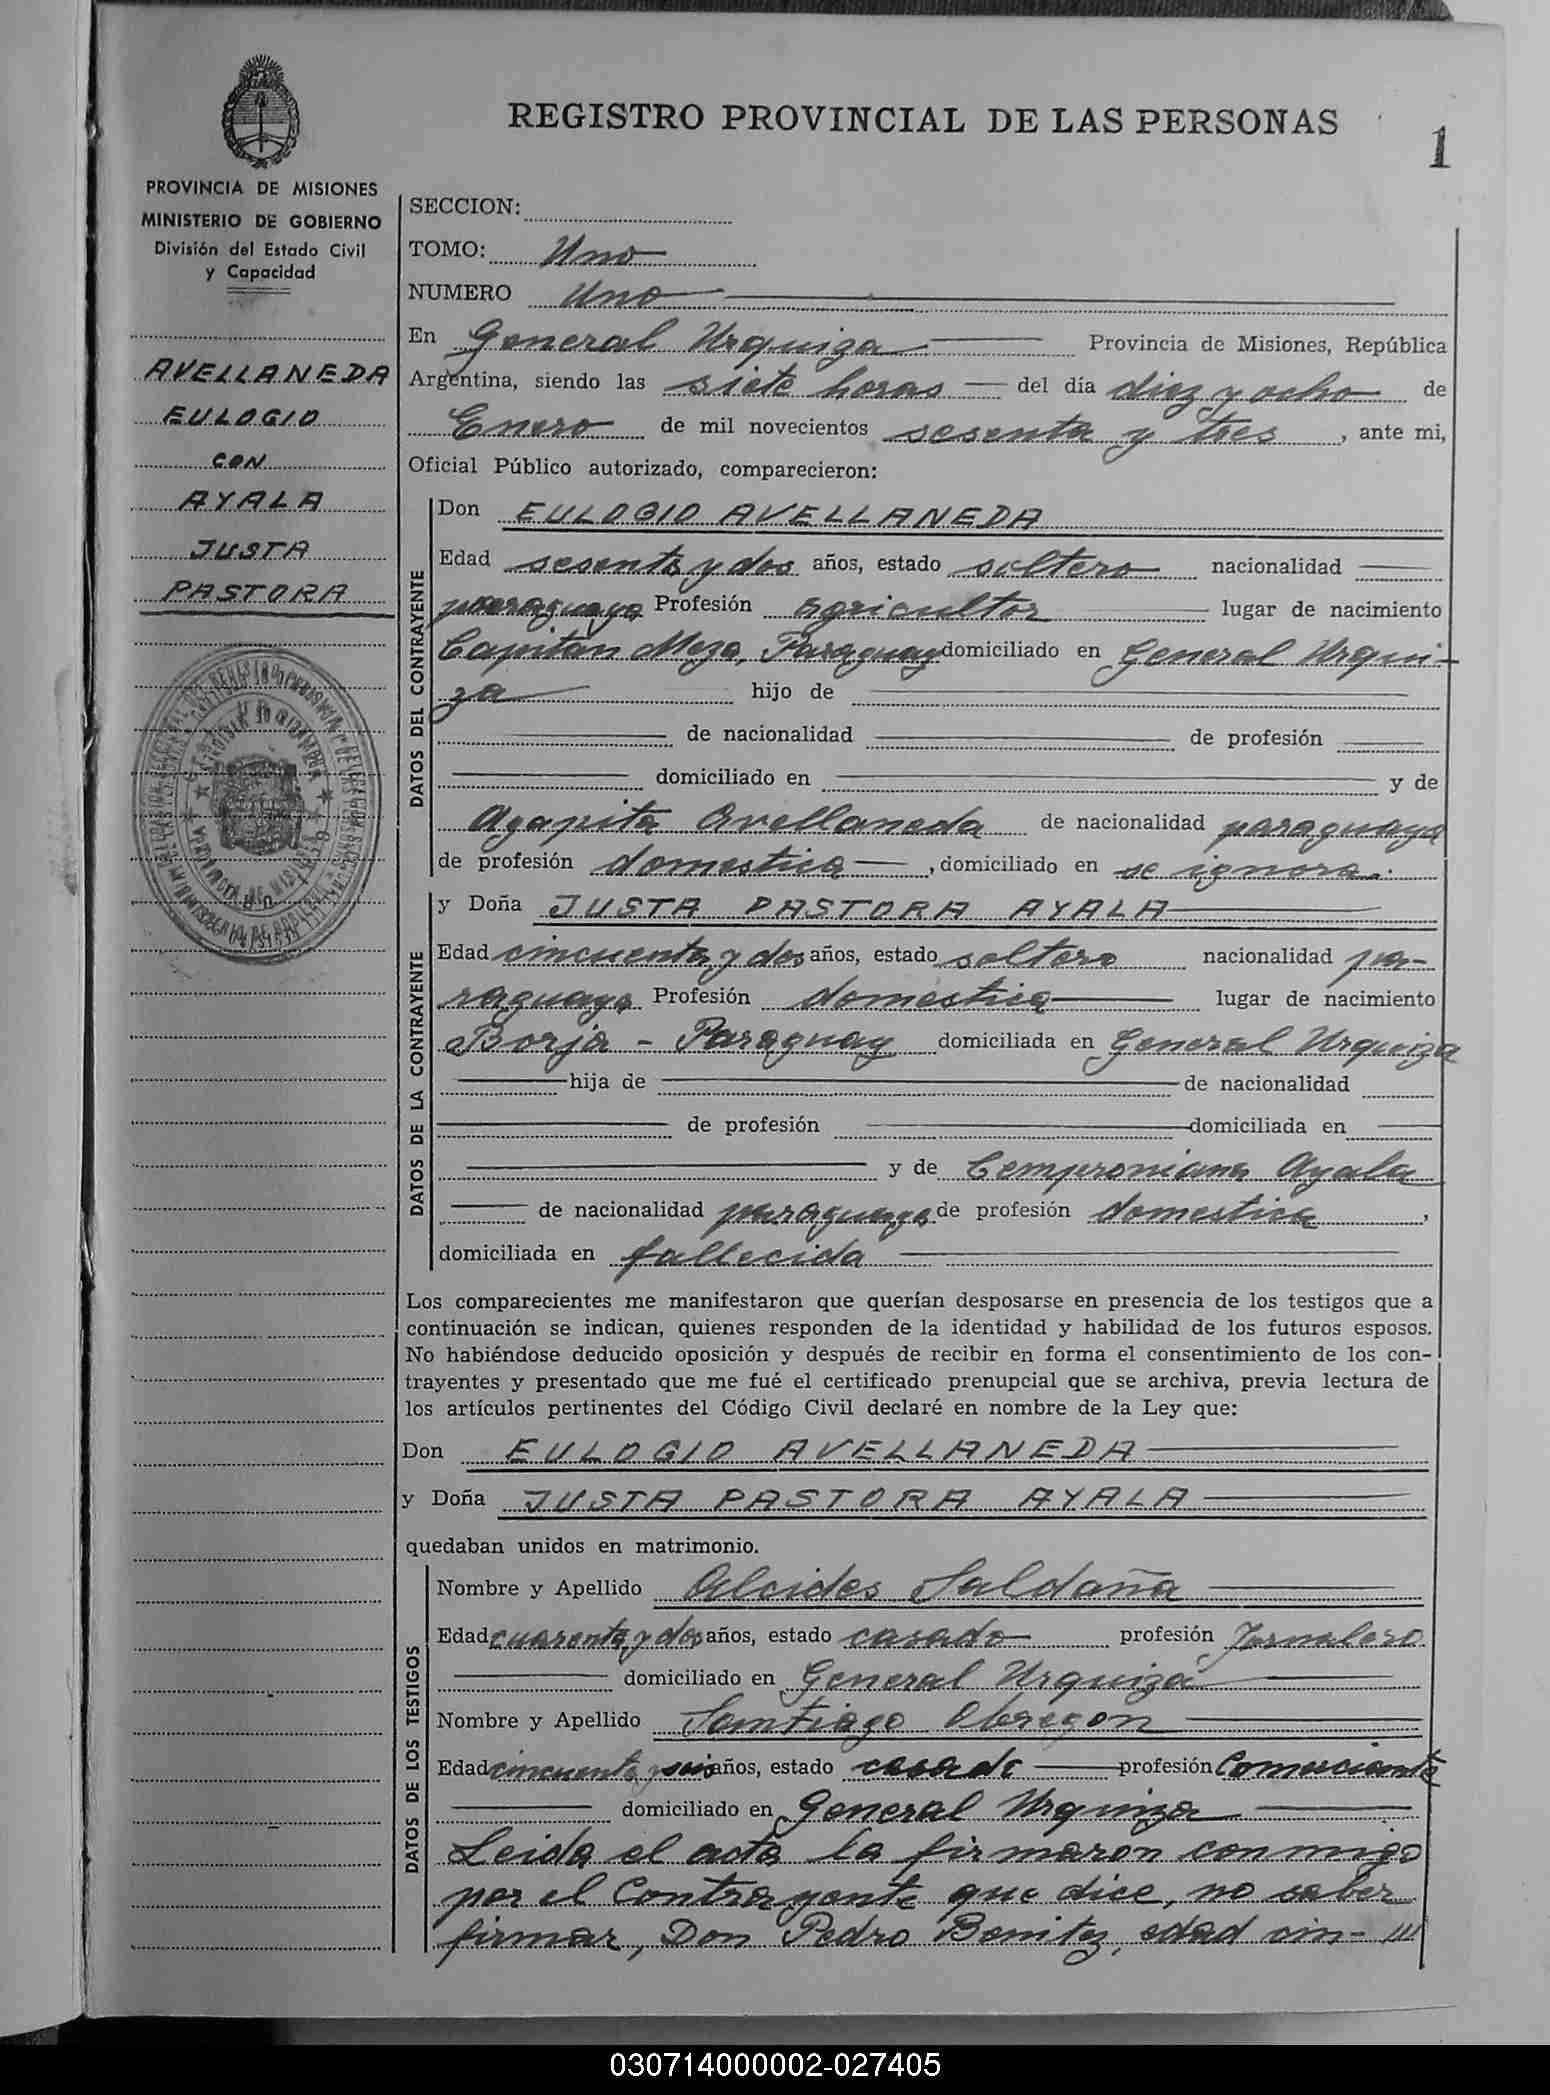 REGISTRO PROVINCIAL DE LAS PERSONAS
1
PROVINCIA DE MISIONES
MINISTERIO DE GOBIERNO
División del Estado Civil
y Capacidad
AVELLANEDA
EULOGIO
CON
AYALA
JUSTA
PASTORA
SECCION:
TOMO: Uno
NUMERO Uno
En General Urquiza Provincia de Misiones, República
Argentina, siendo las siete horas del día diez y ocho de
Enero de mil novecientos sesenta y tres, ante mi,
Oficial Público autorizado, comparecieron:
DATOS DEL CONTRAYENTE
Don EULOGIO AVELLANEDA
Edad sesenta y dos años, estado soltero nacionalidad
paraguaya Profesión agricultor lugar de nacimiento
Capitán Meza, Paraguay domiciliado en General Urqui-
za hijo de
de nacionalidad de profesión
domiciliado en y de
Agapita Avellaneda de nacionalidad paraguaya
de profesión domestica, domiciliado en se ignora.
DATOS DE LA CONTRAYENTE
y Doña JUSTA PASTORA AYALA
Edad cincuenta y dos años, estado soltera nacionalidad pa-
raguaya Profesión domestica lugar de nacimiento
Borja - Paraguay domiciliada en General Urquiza
hija de de nacionalidad
de profesión domiciliada en
y de Cemproniana Ayala
de nacionalidad paraguaya de profesión domestica,
domiciliada en fallecida
Los comparecientes me manifestaron que querían desposarse en presencia de los testigos que a
continuación se indican, quienes responden de la identidad y habilidad de los futuros esposos.
No habiéndose deducido oposición y después de recibir en forma el consentimiento de los con-
trayentes y presentado que me fué el certificado prenupcial que se archiva, previa lectura de
los artículos pertinentes del Código Civil declaré en nombre de la Ley que:
Don EULOGIO AVELLANEDA
y Doña JUSTA PASTORA AYALA
quedaban unidos en matrimonio.
DATOS DE LOS TESTIGOS
Nombre y Apellido Alcides Saldaña
Edad cuarenta y dos años, estado casado profesión Jornalero
domiciliado en General Urquiza
Nombre y Apellido Santiago Obregon
Edad cincuenta y seis años, estado casado profesión Comerciante
domiciliado en General Urquiza
Leida el acta la firmaron conmigo
por el Contrayente que dice, no saber
firmar, Don Pedro Benitez, edad cin- ///
030714000002-027405